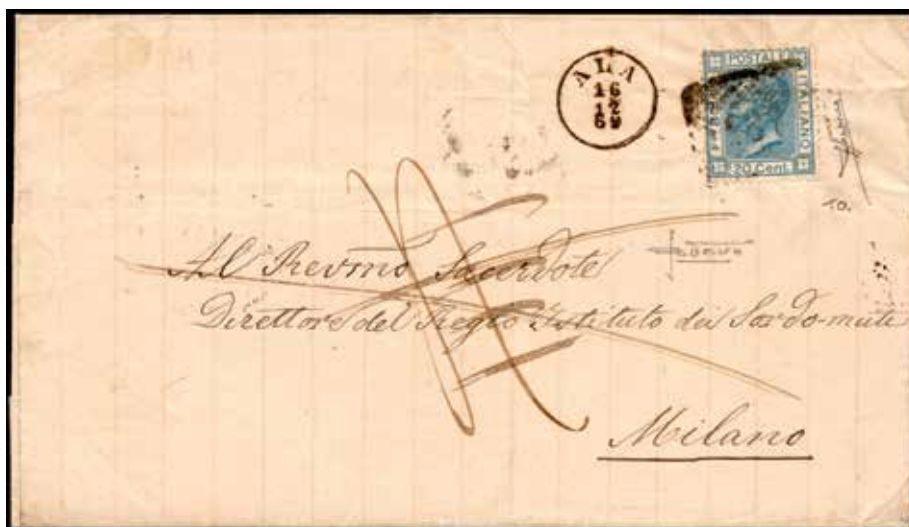 ALA
16
12
69
POSTALE
ITALIANO
20 Cent.
10.
All' Revmo Sacerdote
Direttore del Regio Istituto dei Sordo-muti
Milano